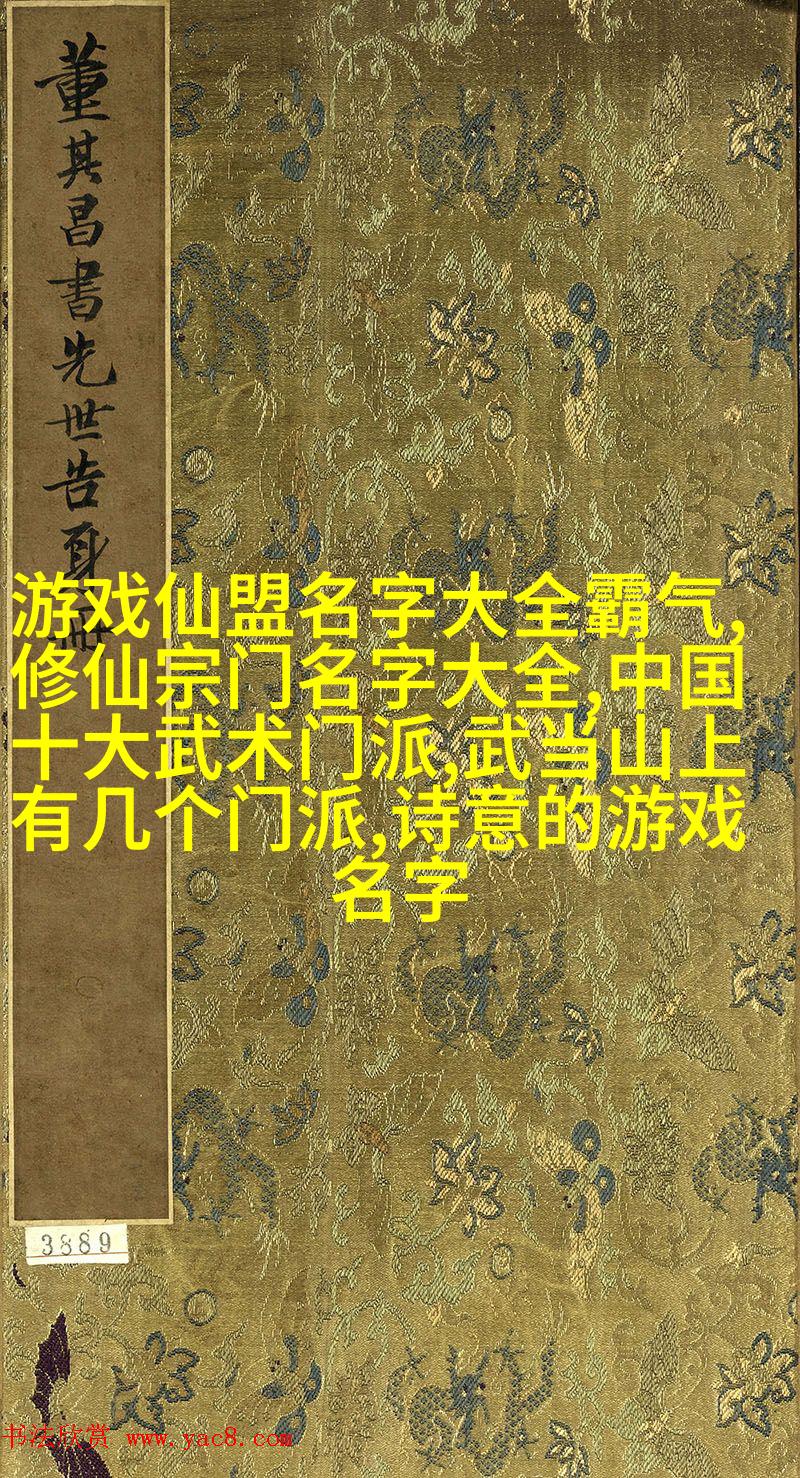 董其昌書先世告身冊
游戏仙盟名字大全霸气,
修仙宗门名字大全,中国
十大武术门派,武当山上
有几个门派,诗意的游戏
名字
3889
书法欣赏 www.yac8.com